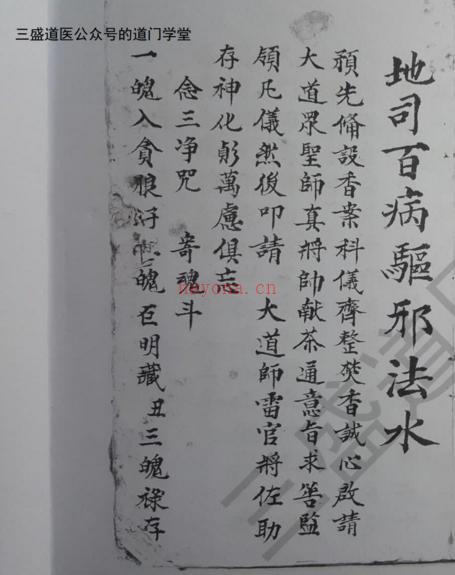 三盛道医公众号的道门学堂
地司百病驅邪法水
預先俻設香案科儀齊整焚香誠心啟請
大道眾聖師真將帥献茶通意旨求筶監
領凡儀然後叩請　大道師雷官將佐助
存神化躬萬慮俱忘
念三净咒　寄魂斗
一魄入貪狼 魄巨明藏丑三魄祿存
nayona.cn
三盛道医